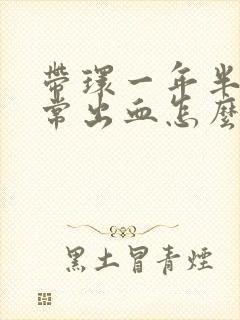 帶環一年半
常出血怎麼
黑土冒青煙